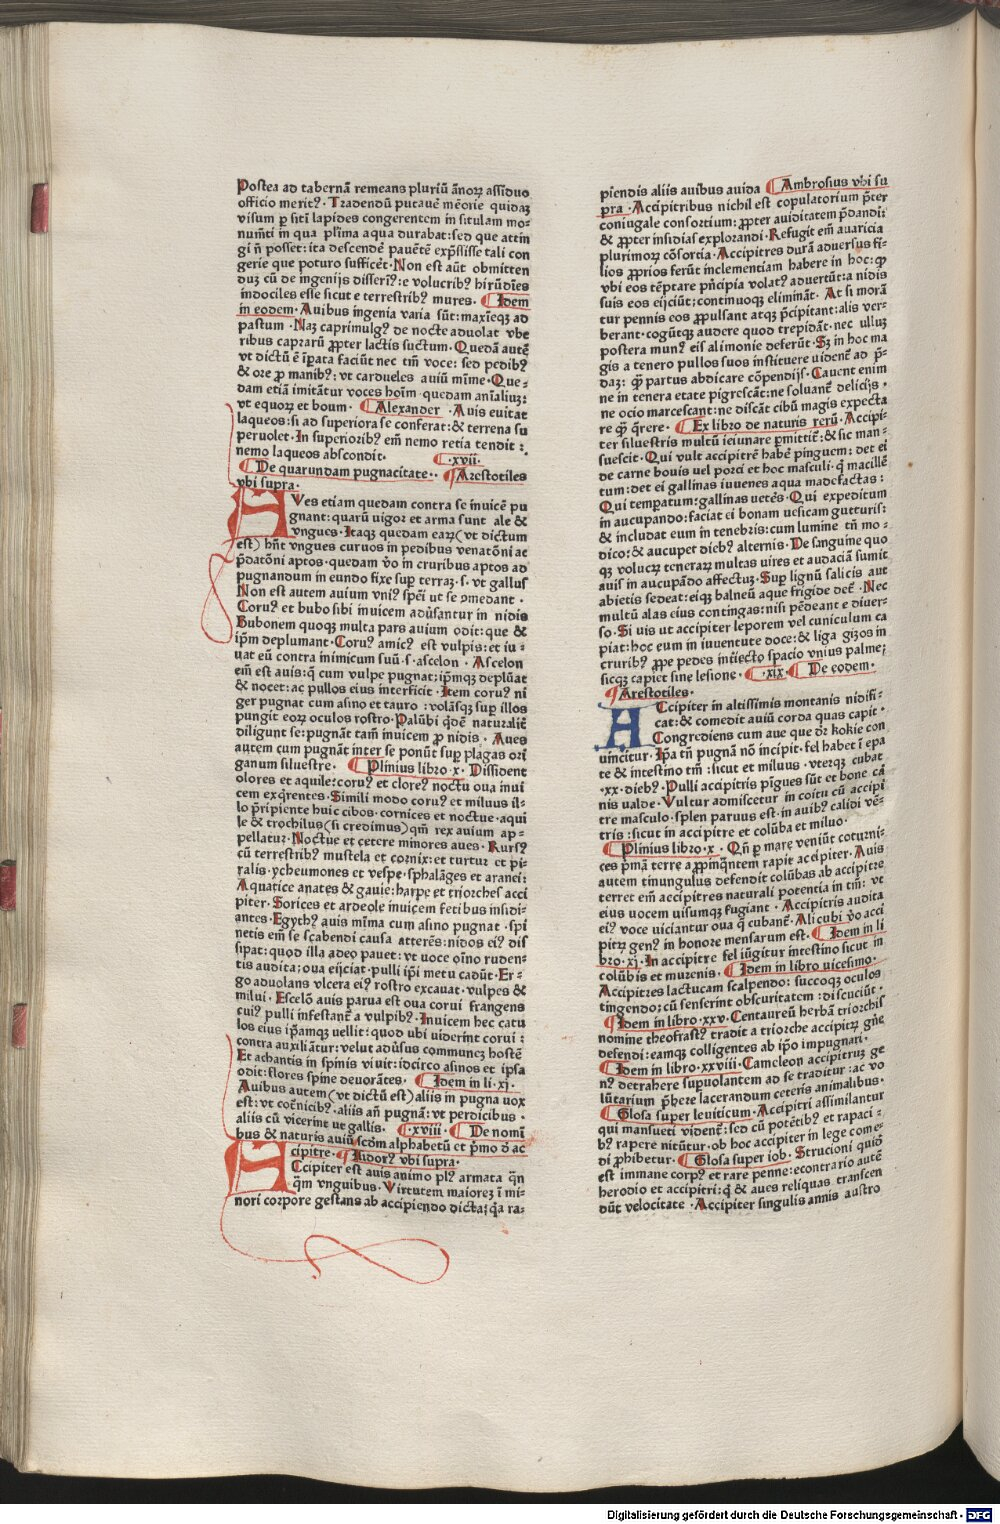 Postea ad tabernā remeans pluriū ãnoꝝ assiduo
officio meritꝰ. Tradendū putauē mēorie quidaꝫ
visum ꝑ siti lapides congerentem in situlam mo-
in qua aqua durabat: sed que attin
gi ñ posset: ita descendē pauētē exp̄sisse tali con
gerie que poturo sufficēt. Non est aūt obmitten
duꝫ cū de ingenijs disseriꝰ: e volucribꝰ hirūdīes
indociles esse sicut e terrestribꝰ mures. Idem
in eodem. Auibus ingenia varia sūt: maxīeqꝫ ad
pastum. Naꝫ caprimulgꝰ de nocte aduolat vbe
ribus caprarū ꝓpter lactis suctum. Quedā autē
vt dictū ē īpata faciūt nec tm̄ voce: sed pedibꝰ
& ore ꝓ manibꝰ: vt cardueles auiū mīme. Que-
dam etiā imitātur voces hoīm quedam aīaliuꝫ:
vt equoꝝ et boum. Alexander. Auis euitat
laqueos: si ad superiora se conferat: & terrena su
peruolet. In superioribꝰ em̄ nemo retia tendit:
nemo laqueos abscondit. .xvii.
De quarundam pugnacitate.. Arestotiles
vbi supra.
AUes etiam quedam contra se inuicē pu
gnant: quarū uigor et arma sunt ale &
vngues. Itaqꝫ quedam eaꝝ (vt dictum
est) hn̄t vngues curuos in pedibus venatōni ac
p̄datōni aptos. quedam v̄o in cruribus aptos ad
pugnandum in eundo fixe suꝑ terraꝫ. s. vt gallus
Non est autem auium vniꝰ sp̄ei ut se ꝯmedant.
Coruꝰ et bubo sibi inuicem adūsantur in nidis
Bubonem quoqꝫ multa pars auium odit: que &
ip̄m deplumant. Coruꝰ amicꝰ est vulpis: et iu-
uat eū contra inimicum suū. s. ascelon. Ascelon
em̄ est auis: q̄ cum vulpe pugnat: ip̄mqꝫ deplūat
& nocet: ac pullos eius interficit. Item coruꝰ ni
ger pugnat cum asino et tauro: volāsqꝫ sup illos
pungit eoꝝ oculos rostro. Palūbi q̄dē naturalit̄
diligunt se: pugnāt tam̄ inuicem ꝓ nidis. Aues
autem cum pugnāt inter se ponūt suꝑ plagas ori
ganum siluestre. Plinius libro.x. Dissident
olores et aquile: coruꝰ et cloreꝰ noctu oua inui
cem exq̄rentes. Simili modo coruꝰ et miluus il-
lo p̄ripiente huic cibos. cornices et noctue. aqui
le & trochilus (si credimus) qm̄ rex auium ap-
pellatur. Noctue et cetere minores aues. Rursꝰ
cū terrestribꝰ mustela et cornix: et turtur et pi-
ralis. ycheumones et vespe. sphalāges et aranei:
Aquatice anates & gauie: harpe et triorches acci
piter. Sorices et ardeole inuicem fetibus insidi-
antes. Egythꝰ auis mīma cum asino pugnat. spi
netis em̄ se scabendi causa atterēs: nidos eiꝰ dis
sipat: quod illa adeo pauet: vt uoce oīno ruden-
tis audita: oua eijciat. pulli ip̄i metu cadūt. Er-
go aduolans vlcera eiꝰ rostro excauat. vulpes &
milui. Escelō auis parua est oua corui frangens
cuiꝰ pulli infestant̄ a vulpibꝰ. Inuicem hec catu
los eius ip̄amqꝫ uellit: quod ubi uiderint corui:
contra auxiliātur: velut adūsus communeꝫ hostē
Et achantis in spinis viuit: idcirco asinos et ipsa
odit: flores spine deuorātes. Idem in li. xj.
Auibus autem (vt dictū est) aliis in pugna uox
est: vt cot̄nicibꝰ. aliis añ pugnā: vt perdicibus.
aliis cū vicerint ut gallis. .xviii. De nomi
bus & naturis auiū scōm alphabetū et p̄mo d̄ ac
cipitre. Isidorꝰ vbi supra.
ACcipiter est auis animo plꝰ armata q̄n
q̄m vnguibus. Virtutem maioreꝫ ī mi-
nori corpore gestans ab accipiendo dicta: q̄a ra-
piendis aliis auibus auida Ambrosius vbi su
pra. Accipitribus nichil est copulatorium p̄ter
coniugale consortium: ꝓpter auiditatem p̄dandi:
& ꝓpter insidias explorandi. Refugit em̄ auaricia
plurimoꝝ cōsortia. Accipitres durā aduersus fi-
lios ꝓprios ferūt inclementiam habere in hoc: ꝙ
vbi eos tēptare pn̄cipia volatꝰ aduertūt: a nidis
suis eos eijciūt; continuoqꝫ elimināt. At si morā
tur pennis eos ꝓpulsant atqꝫ p̄cipitant: alis ver-
berant. cogūtqꝫ audere quod trepidāt. nec ulluꝫ
postera munꝰ eis alimonie deferūt. Sꝫ in hoc ma
gis a tenero pullos suos instituere uident̄ ad p̄-
daꝫ: ꝙ̄ partus abdicare cōpendijs. Cauent enim
ne in tenera etate pigrescāt: ne soluant̄ delicijs.
ne ocio marcescant: ne discāt cibū magis expecta
re ꝙ̄ q̄rere. Ex libro de naturis rerū. Accipi-
ter siluestris multū ieiunare ꝑmittit̄: & sic man-
suescit. Qui vult accipitrē habē pinguem: det ei
de carne bouis uel porci et hoc masculi. q̄ macillē
tum: det ei gallinas iuuenes aqua madefactas:
Qui temꝑatum: gallinas uetēs. Qui expeditum
in aucupando: faciat ei bonam uesicam gutturis:
& includat eum in tenebris: cum lumine tn̄ mo-
dico: & aucupet diebꝰ alternis. De sanguine quo
qꝫ volucꝝ teneraꝝ multas uires et audaciā sumit
auis in aucupādo affectuꝫ. Suꝑ lignū salicis aut
abietis sedeat: eiqꝫ balneū aque frigide det̄. Nec
multū alas eius contingas: nisi pēdeant e diuer-
so. Si uis ut accipiter leporem vel cuniculum ca
piat: hoc eum in iuuentute doce: & liga giꝫos in
cruribꝰ ꝓpe pedes int̄iecto spacio vnius palme;
sicqꝫ capiet sine lesione. .xix. De eodem.
Arestotiles.
ACcipiter in altissimis montanis nidifi-
cat: & comedit auiū corda quas capit.
Congrediens cum aue que dr̄ kokie con
uincitur. Ip̄a tn̄ pugnā nō incipit. fel habet ī epa
te & intestino tm̄: sicut et miluus. vterqꝫ cubat
.xx. diebꝰ. Pulli accipitris pīgues sūt et bone car
nis ualde. Vultur admiscetur in coitu cū accipi
tre masculo. splen paruus est. in auibꝰ calidi vē-
tris: sicut in accipitre et colūba et miluo.
Plinius libro.x. Qn̄ ꝑ mare veniūt coturni-
ces p̄mā terre aꝓpinq̄ntem rapit accipiter. Auis
autem tinungulus defendit colūbas ab accipitre
terret em̄ accipitres naturali potentia in tm̄: vt
eius uocem uisumqꝫ fugiant. Accipitris audita
eiꝰ voce viciantur oua q̄ cubant̄. Alicubi v̄o acci
pitꝝ genꝰ in honore mensarum est. Idem in li
bro. xj. In accipitre fel iūgitur intestino sicut in
colūbis et murenis. Idem in libro uicesimo.
Accipitres lactucam scalpendo: succoqꝫ oculos
tingendo; cū senserint obscuritatem: discuciūt.
Idem in libro. xxv. Centaureū herbā triorchis
nomine theofrastꝰ tradit a triorche accipitꝝ gn̄e
defendi: eamqꝫ colligentes ab ip̄o impugnari.
Idem in libro.xxviii. Cameleon accipitruꝫ ge
nꝰ detrahere supuolantem ad se traditur: ac vo
lūtarium p̄bere lacerandum ceteris animalibus.
Glosa super leuiticum. Accipitri assimilantur
qui mansueti vident̄: sed cū potētibꝰ et rapaci-
bꝰ rapere nitūtur. ob hoc accipiter in lege come-
di ꝓhibetur. Glosa super iob. Strucioni quiō
est immane corpꝰ et rare penne: econtrario autē
herodio et accipitri: q̄ & aues reliquas transcen
dūt velocitate. Accipiter singulis annis austro
Digitalisierung gefördert durch die Deutsche Forschungsgemeinschaft - DFG